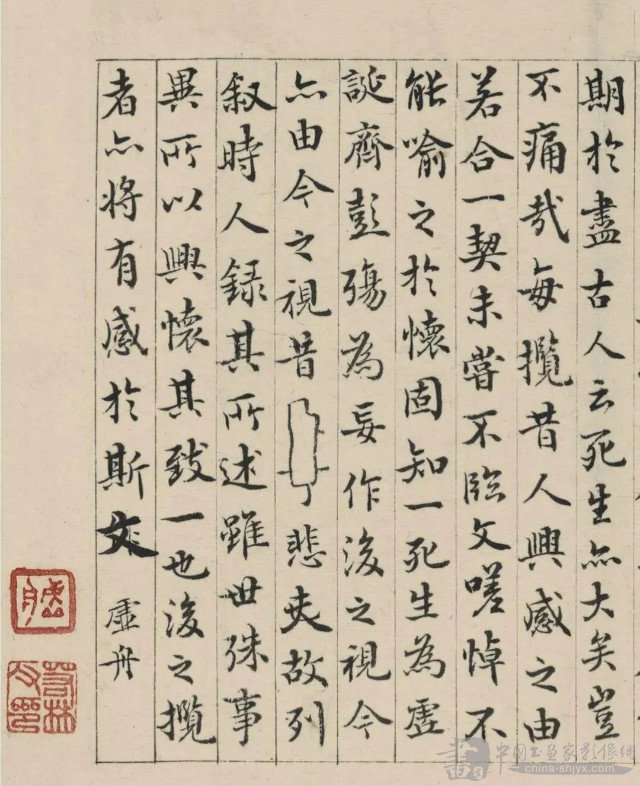 期於盡古人云死生亦大矣豈
不痛哉每攬昔人興感之由
若合一契未嘗不臨文嗟悼不
能喻之於懷固知一死生為虛
誕齊彭殤為妄作後之視今
亦由今之視昔悲夫故列
叙時人錄其所述雖世殊事
異所以興懷其致一也後之攬
者亦將有感於斯文
虛舟
中国书画家影像網
china-shjyx.com